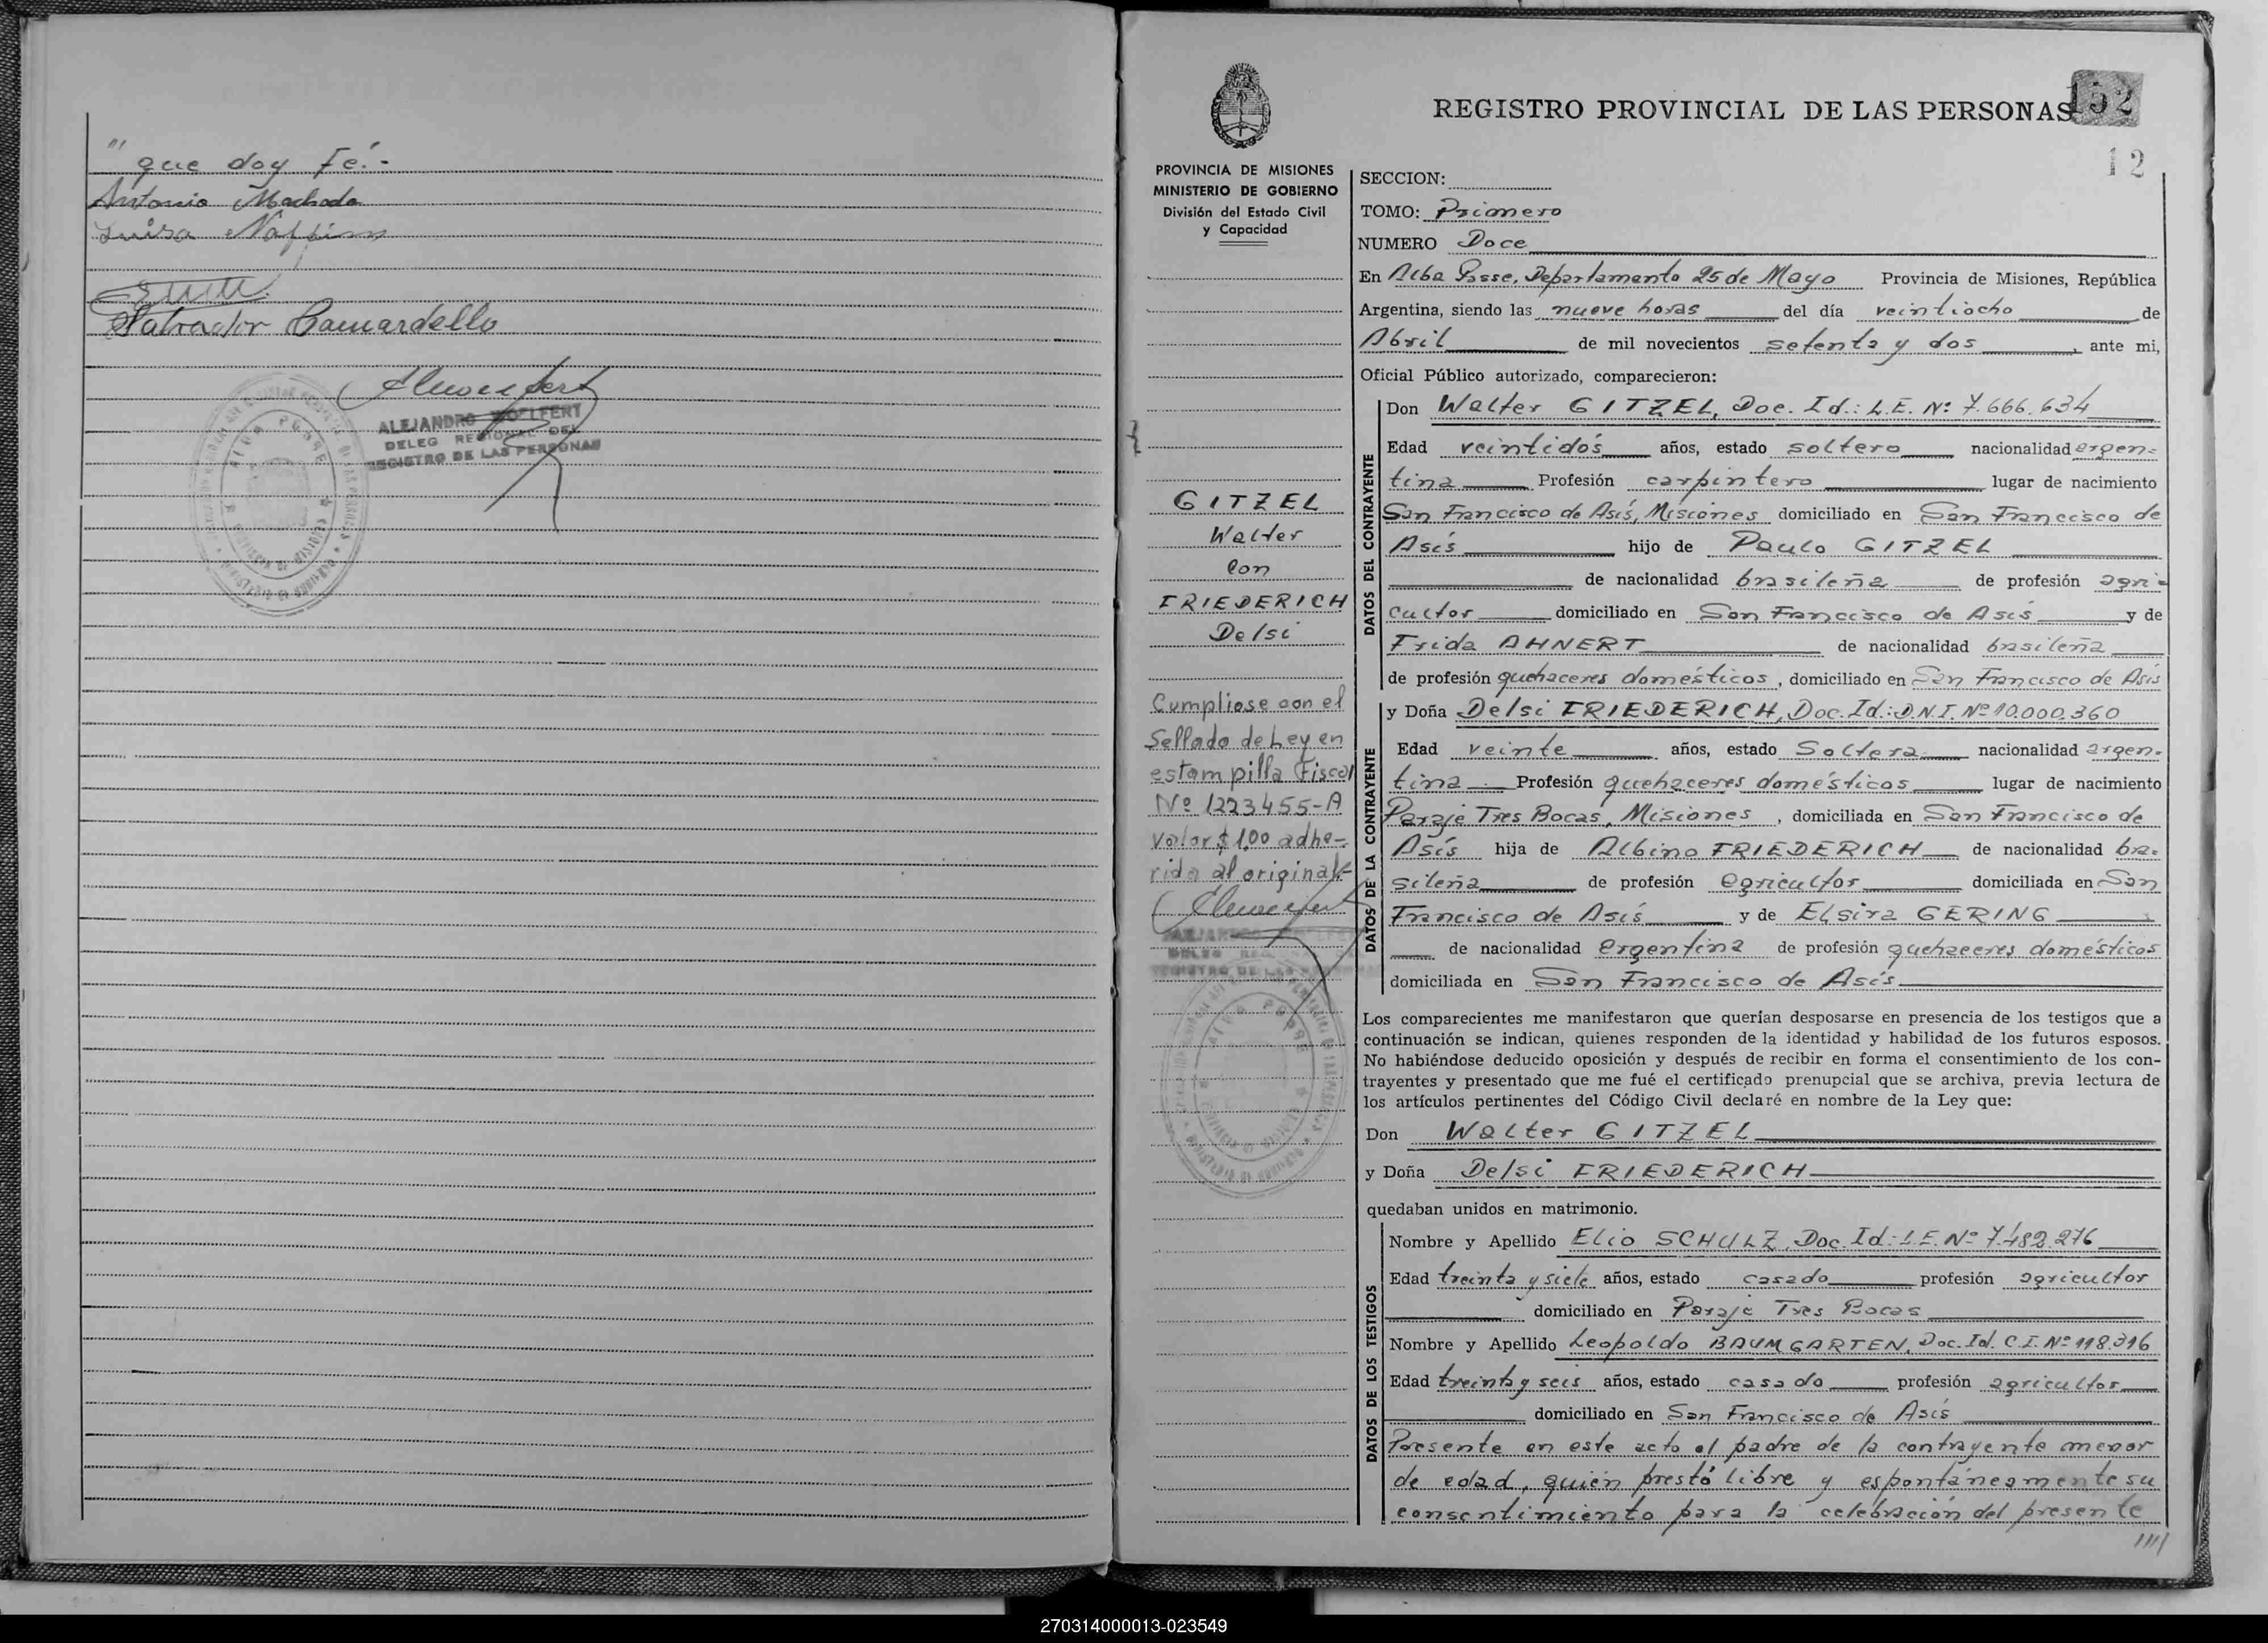 " que doy Fé.-
Antonio Machado
Luisa
Salvador Camardello
ALEJANDRO WOELFERT
DELEG REGIONAL DEL
REGISTRO DE LAS PERSONAS
REGISTRO PROVINCIAL DE LAS PERSONAS
152
12
PROVINCIA DE MISIONES
MINISTERIO DE GOBIERNO
División del Estado Civil
y Capacidad
GITZEL
Walter
Con
FRIEDERICH
Delsi
Cumpliose con el
Sellado de Ley en
estampilla Fiscal
Nº 1223455-A
valor $ 1,00 adhe-
rida al original.-
SECCION:
TOMO: Primero
NUMERO Doce
En Alba Posse, Departamento 25 de Mayo Provincia de Misiones, República
Argentina, siendo las nueve horas del día veintiocho de
Abril de mil novecientos setenta y dos, ante mi,
Oficial Público autorizado, comparecieron:
DATOS DEL CONTRAYENTE
Don Walter GITZEL, Doc. Id.: L.E. Nº 7.666.634
Edad veintidós años, estado soltero nacionalidad argen-
tina Profesión carpintero lugar de nacimiento
San Francisco de Asís, Misiones domiciliado en San Francisco de
Asís hijo de Paulo GITZEL
de nacionalidad brasileña de profesión agri-
cultor domiciliado en San Francisco de Asís y de
Frida AHNERT de nacionalidad brasileña
de profesión quehaceres domésticos, domiciliado en San Francisco de Asís
DATOS DE LA CONTRAYENTE
y Doña Delsi FRIEDERICH, Doc. Id.: D.N.I. Nº 10.000.360
Edad veinte años, estado Soltera nacionalidad argen-
tina Profesión quehaceres domésticos lugar de nacimiento
Paraje Tres Bocas, Misiones, domiciliada en San Francisco de
Asís hija de Albino FRIEDERICH de nacionalidad bra-
sileña de profesión agricultor domiciliada en San
Francisco de Asís y de Elsira GERING
de nacionalidad argentina de profesión quehaceres domésticos
domiciliada en San Francisco de Asís
Los comparecientes me manifestaron que querían desposarse en presencia de los testigos que a
continuación se indican, quienes responden de la identidad y habilidad de los futuros esposos.
No habiéndose deducido oposición y después de recibir en forma el consentimiento de los con-
trayentes y presentado que me fué el certificado prenupcial que se archiva, previa lectura de
los artículos pertinentes del Código Civil declaré en nombre de la Ley que:
Don Walter GITZEL
y Doña Delsi FRIEDERICH
quedaban unidos en matrimonio.
DATOS DE LOS TESTIGOS
Nombre y Apellido Elio SCHULZ, Doc. Id.: L.E. Nº 7.482.276
Edad treinta y siete años, estado casado profesión agricultor
domiciliado en Paraje Tres Bocas
Nombre y Apellido Leopoldo BAUMGARTEN, Doc. Id. C.I. Nº 118.316
Edad treinta y seis años, estado casado profesión agricultor
domiciliado en San Francisco de Asís
Presente en este acto el padre de la contrayente menor
de edad, quien prestó libre y espontáneamente su
consentimiento para la celebración del presente
////
270314000013-023549